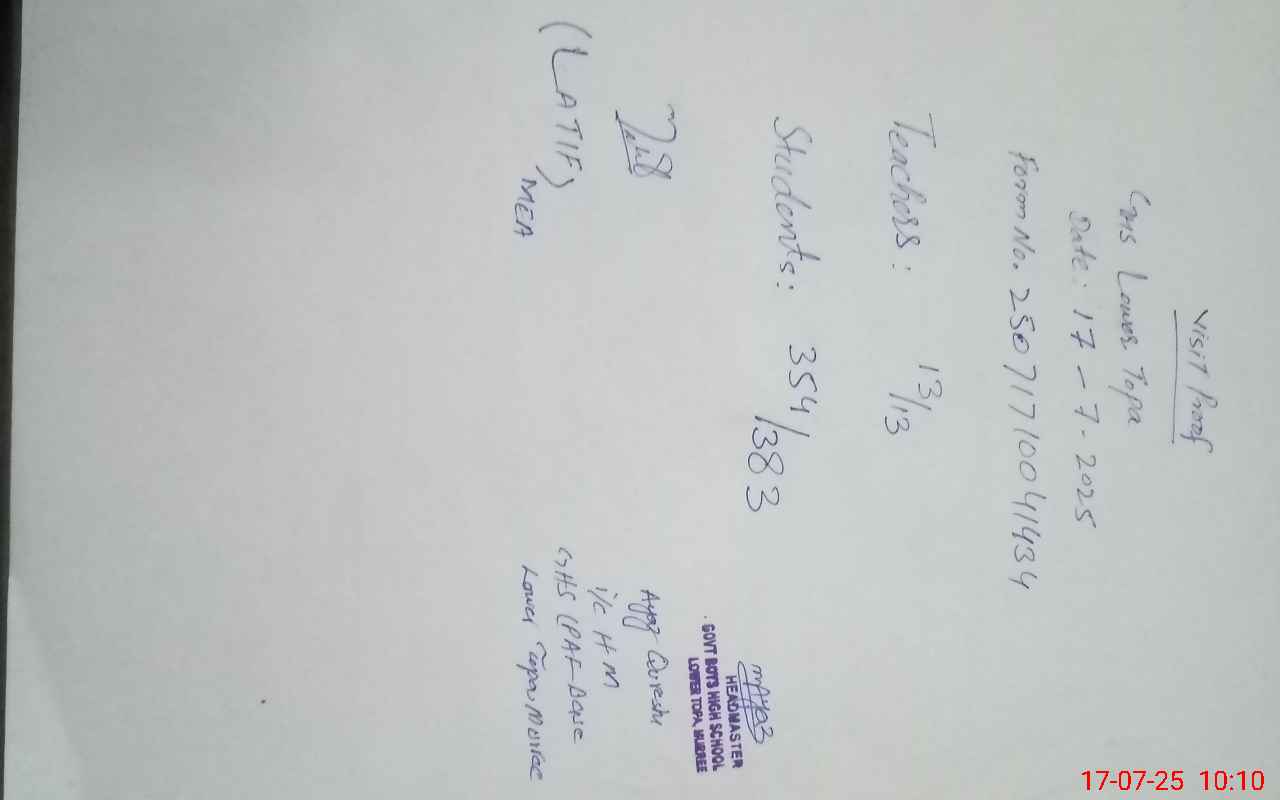 Visit Proof
GHS Lower Topa
Date: 17-7-2025
Form No. 25071710041434
Teachers: 13/13
Students: 354/383
(LATIF)
MEA
mAyaz
HEADMASTER
GOVT BOYS HIGH SCHOOL
LOWER TOPA, MURREE
Ayaz Qureshi
i/c H M
GHS (PAF-Base
Lower Topa Murree
17-07-25 10:10